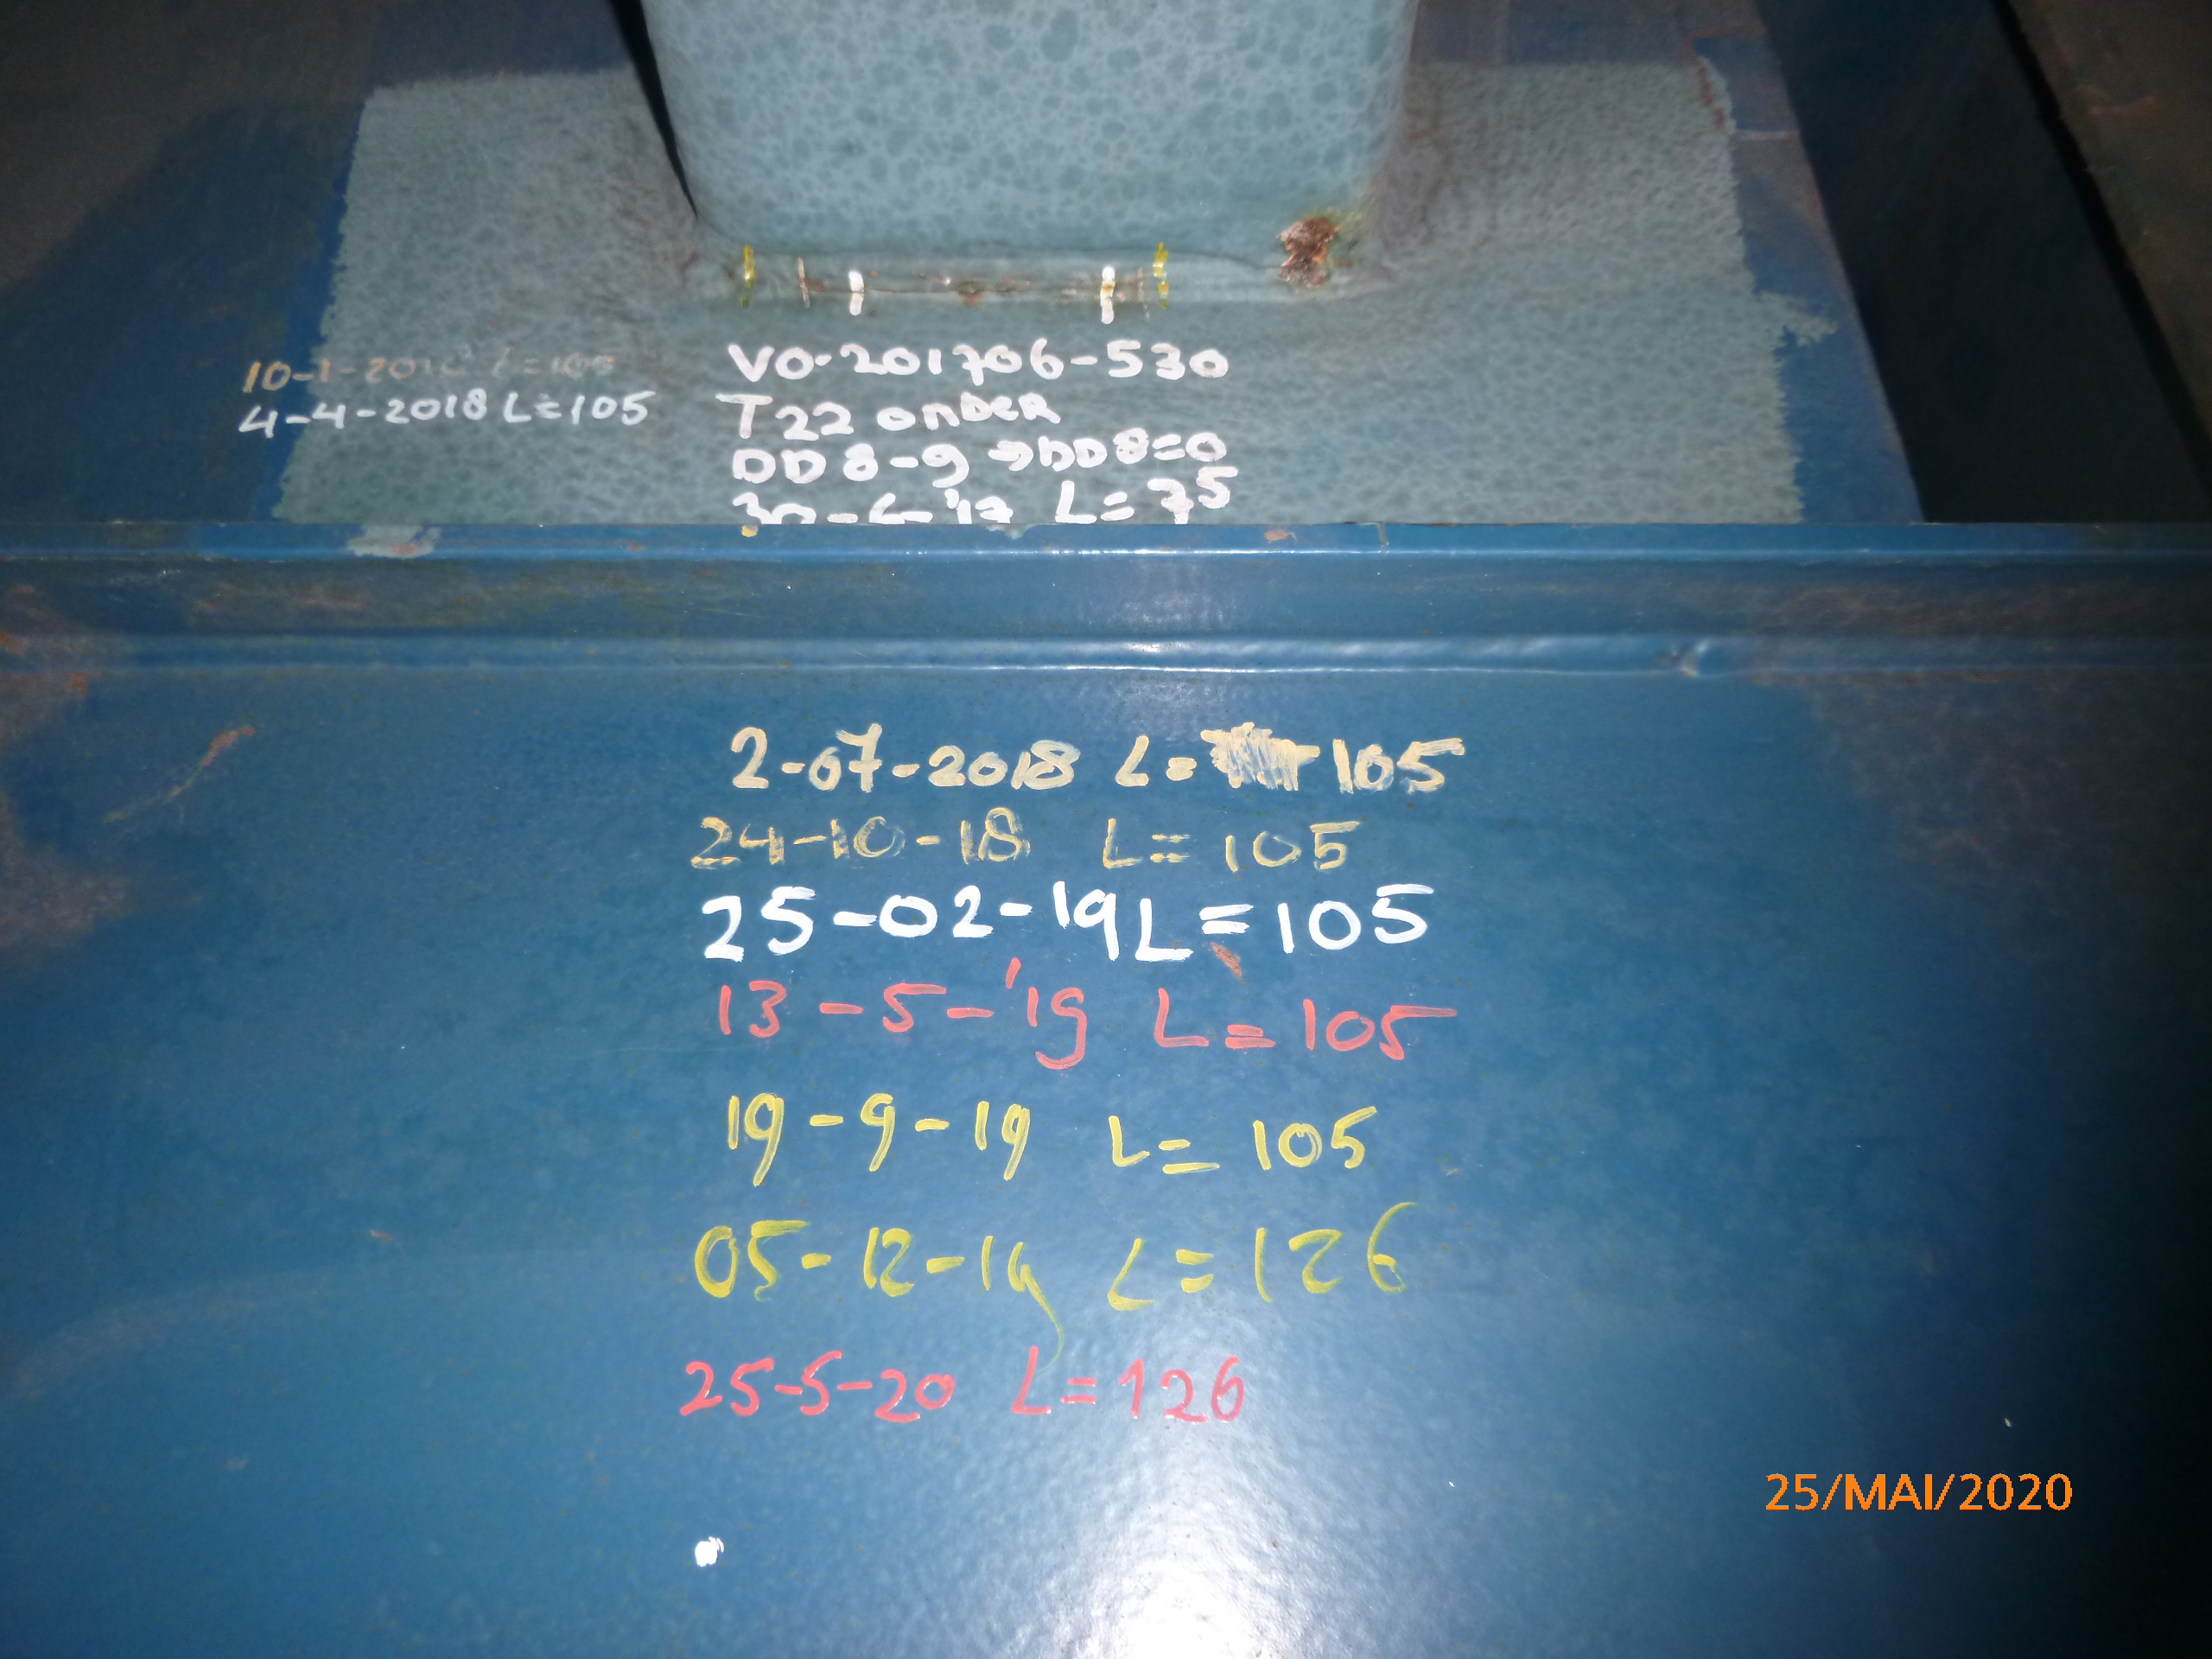 10-1-2018 L=105
4-4-2018 L=105
VO-201706-530
T22 onder
DD8-9 →DD8=0
30-6-'17 L=75
2-07-2018 L= 105
24-10-18 L=105
25-02-19 L=105
13-5-'19 L=105
19-9-19 L=105
05-12-19 L=126
25-5-20 L=126
25/MAI/2020